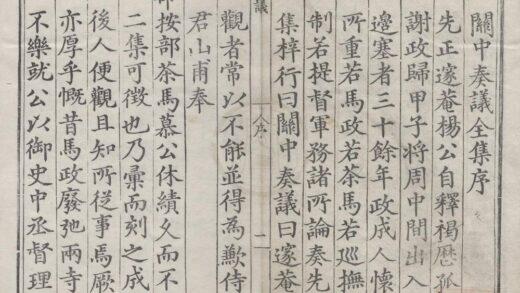 關中奏議全集序
先正邃菴楊公自釋褐歷孤
謝政歸甲子將周中間出入
邊塞者三十餘年政成人懷
所重若馬政若茶馬若巡撫
制若提督軍務諸所論奏先
集梓行曰關中奏議曰邃菴
議 序 二
觀者常以不能並得為歉侍
君山甫奉
按部茶馬慕公休績久而不
二集可徵也乃彙而刻之成
後人便觀且知所從事焉厥
亦厚乎慨昔馬政廢弛兩寺
不樂就公以御史中丞督理